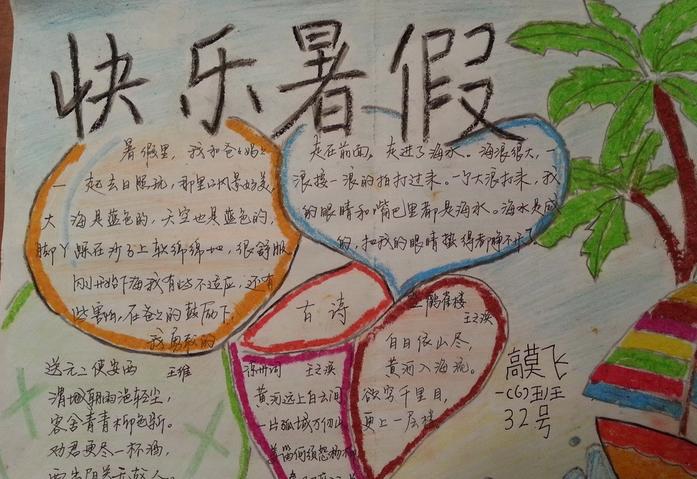 快乐暑假
暑假里，我和爸爸妈妈
一起去日照玩，那里的风景好美，
大海是蓝色的，天空也是蓝色的，
脚丫踩在沙子上软绵绵地，很舒服
刚开始下海我有些不适应，还有
些害怕，在爸爸的鼓励下，
我勇敢的
走在前面，走进了海水。海浪很大，一
浪接一浪的拍打过来。一个大浪打来，我
的眼睛和嘴巴里都是海水。海水是咸
的，把我的眼睛蛰得都睁不开了。
古诗
送元二使安西 王维
渭城朝雨浥轻尘，
客舍青青柳色新。
劝君更尽一杯酒，
西出阳关无故人。
凉州词 王之涣
黄河远上白云间
一片孤城万仞山
羌笛何须怨杨柳
登鹳雀楼
王之涣
白日依山尽，
黄河入海流。
欲穷千里目，
更上一层楼
高莫飞
一(6)班
32号